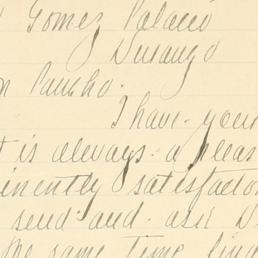 Gomez Palacio
Durango
n Pancho.
I have your
t is always a pleas
inently satisfactor
send and ask D
the same time find